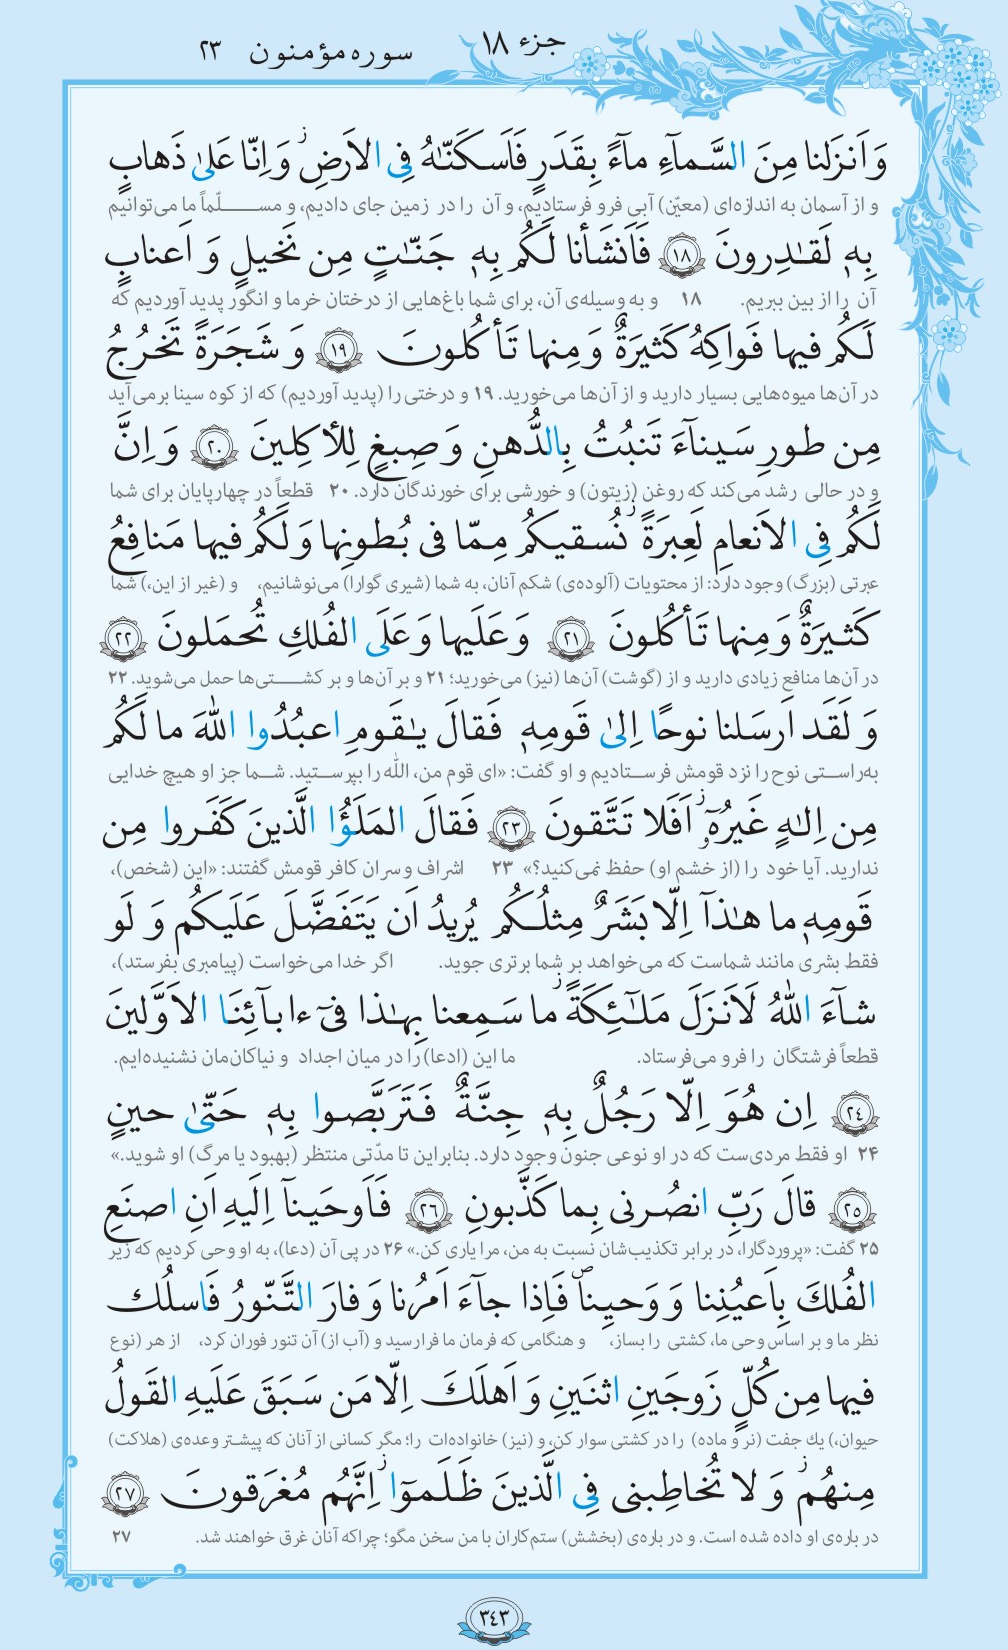 جزء ۱۸
سوره مؤمنون ۲۳
وَ اَنزَلنا مِنَ السَّمآءِ مآءً بِقَدَرٍ فَاَسكَنّٰهُ فِی الاَرضِ ز وَ اِنّا عَلیٰ ذَهابٍ
و از آسمان به اندازه‌ای (معیّن) آبی فرو فرستادیم، و آن را در زمین جای دادیم، و مسلّماً ما می‌توانیم
بِهٖ لَقٰدِرونَ ﴿۱۸﴾ فَاَنشَأنا لَكُم بِهٖ جَنّٰتٍ مِن نَخیلٍ وَ اَعنابٍ
آن را از بین ببریم. ۱۸ و به وسیله‌ی آن، برای شما باغ‌هایی از درختان خرما و انگور پدید آوردیم که
لَكُم فیها فَواكِهُ كَثیرَةٌ وَ مِنها تَأكُلونَ ﴿۱۹﴾ وَ شَجَرَةً تَخرُجُ
در آن‌ها میوه‌هایی بسیار دارید و از آن‌ها می‌خورید. ۱۹ و درختی را (پدید آوردیم) که از کوه سینا برمی‌آید
مِن طورِ سَینآءَ تَنبُتُ بِالدُّهنِ وَ صِبغٍ لِلأكِلینَ ﴿۲۰﴾ وَ اِنَّ
و در حالی رشد می‌کند که روغن (زیتون) و خورشی برای خورندگان دارد. ۲۰ قطعاً در چهارپایان برای شما
لَكُم فِی الاَنعامِ لَعِبرَةً ز نُسقیكُم مِمّا فی بُطونِها وَ لَكُم فیها مَنافِعُ
عبرتی (بزرگ) وجود دارد: از محتویات (آلوده‌ی) شکم آنان، به شما (شیری گوارا) می‌نوشانیم، و (غیر از این،) شما
كَثیرَةٌ وَ مِنها تَأكُلونَ ﴿۲۱﴾ وَ عَلَیها وَ عَلَی الفُلكِ تُحمَلونَ ﴿۲۲﴾
در آن‌ها منافع زیادی دارید و از (گوشت) آن‌ها (نیز) می‌خورید؛ ۲۱ و بر آن‌ها و بر کشتی‌ها حمل می‌شوید. ۲۲
وَ لَقَد اَرسَلنا نوحًا اِلیٰ قَومِهٖ فَقالَ یٰقَومِ اعبُدُوا اللّٰهَ ما لَكُم
به‌راستی نوح را نزد قومش فرستادیم و او گفت: «ای قوم من، اللّٰه را بپرستید. شما جز او هیچ خدایی
مِن اِلٰهٍ غَیرُهٗٓ ز اَفَلا تَتَّقونَ ﴿۲۳﴾ فَقالَ المَلَؤُا الَّذینَ كَفَروا مِن
ندارید. آیا خود را (از خشم او) حفظ نمی‌کنید؟» ۲۳ اشراف و سران کافر قومش گفتند: «این (شخص)،
قَومِهٖ ما هٰذآ اِلّا بَشَرٌ مِثلُكُم یُریدُ اَن یَتَفَضَّلَ عَلَیكُم وَ لَو
فقط بشری مانند شماست که می‌خواهد بر شما برتری جوید. اگر خدا می‌خواست (پیامبری بفرستد)،
شآءَ اللّٰهُ لَاَنزَلَ مَلٰٓئِكَةً ز ما سَمِعنا بِهٰذا فیٓ ءابآئِنَا الاَوَّلینَ
قطعاً فرشتگان را فرو می‌فرستاد. ما این (ادعا) را در میان اجداد و نیاکان‌مان نشنیده‌ایم.
﴿۲۴﴾ اِن هُوَ اِلّا رَجُلٌ بِهٖ جِنَّةٌ فَتَرَبَّصوا بِهٖ حَتّیٰ حینٍ
۲۴ او فقط مردی‌ست که در او نوعی جنون وجود دارد. بنابراین تا مدّتی منتظر (بهبود یا مرگ) او شوید.»
﴿۲۵﴾ قالَ رَبِّ انصُرنی بِما كَذَّبونِ ﴿۲۶﴾ فَاَوحَینآ اِلَیهِ اَنِ اصنَعِ
۲۵ گفت: «پروردگارا، در برابر تکذیب‌شان نسبت به من، مرا یاری کن.» ۲۶ در پی آن (دعا)، به او وحی کردیم که زیر
الفُلكَ بِاَعیُنِنا وَ وَحیِنا ص فَاِذا جآءَ اَمرُنا وَ فارَ التَّنّورُ فَاسلُك
نظر ما و بر اساس وحی ما، کشتی را بساز، و هنگامی که فرمان ما فرا رسید و (آب از) آن تنور فوران کرد، از هر (نوع
فیها مِن كُلٍّ زَوجَینِ اثنَینِ وَ اَهلَكَ اِلّا مَن سَبَقَ عَلَیهِ القَولُ
حیوان،) یک جفت (نر و ماده) را در کشتی سوار کن، و (نیز) خانواده‌ات را؛ مگر کسانی از آنان که پیشتر وعده‌ی (هلاکت)
مِنهُم ز وَ لا تُخاطِبنی فِی الَّذینَ ظَلَموٓا ز اِنَّهُم مُغرَقونَ ﴿۲۷﴾
در باره‌ی او داده شده است. و در باره‌ی (بخشش) ستم‌کاران با من سخن مگو؛ چراکه آنان غرق خواهند شد. ۲۷
۳۴۳